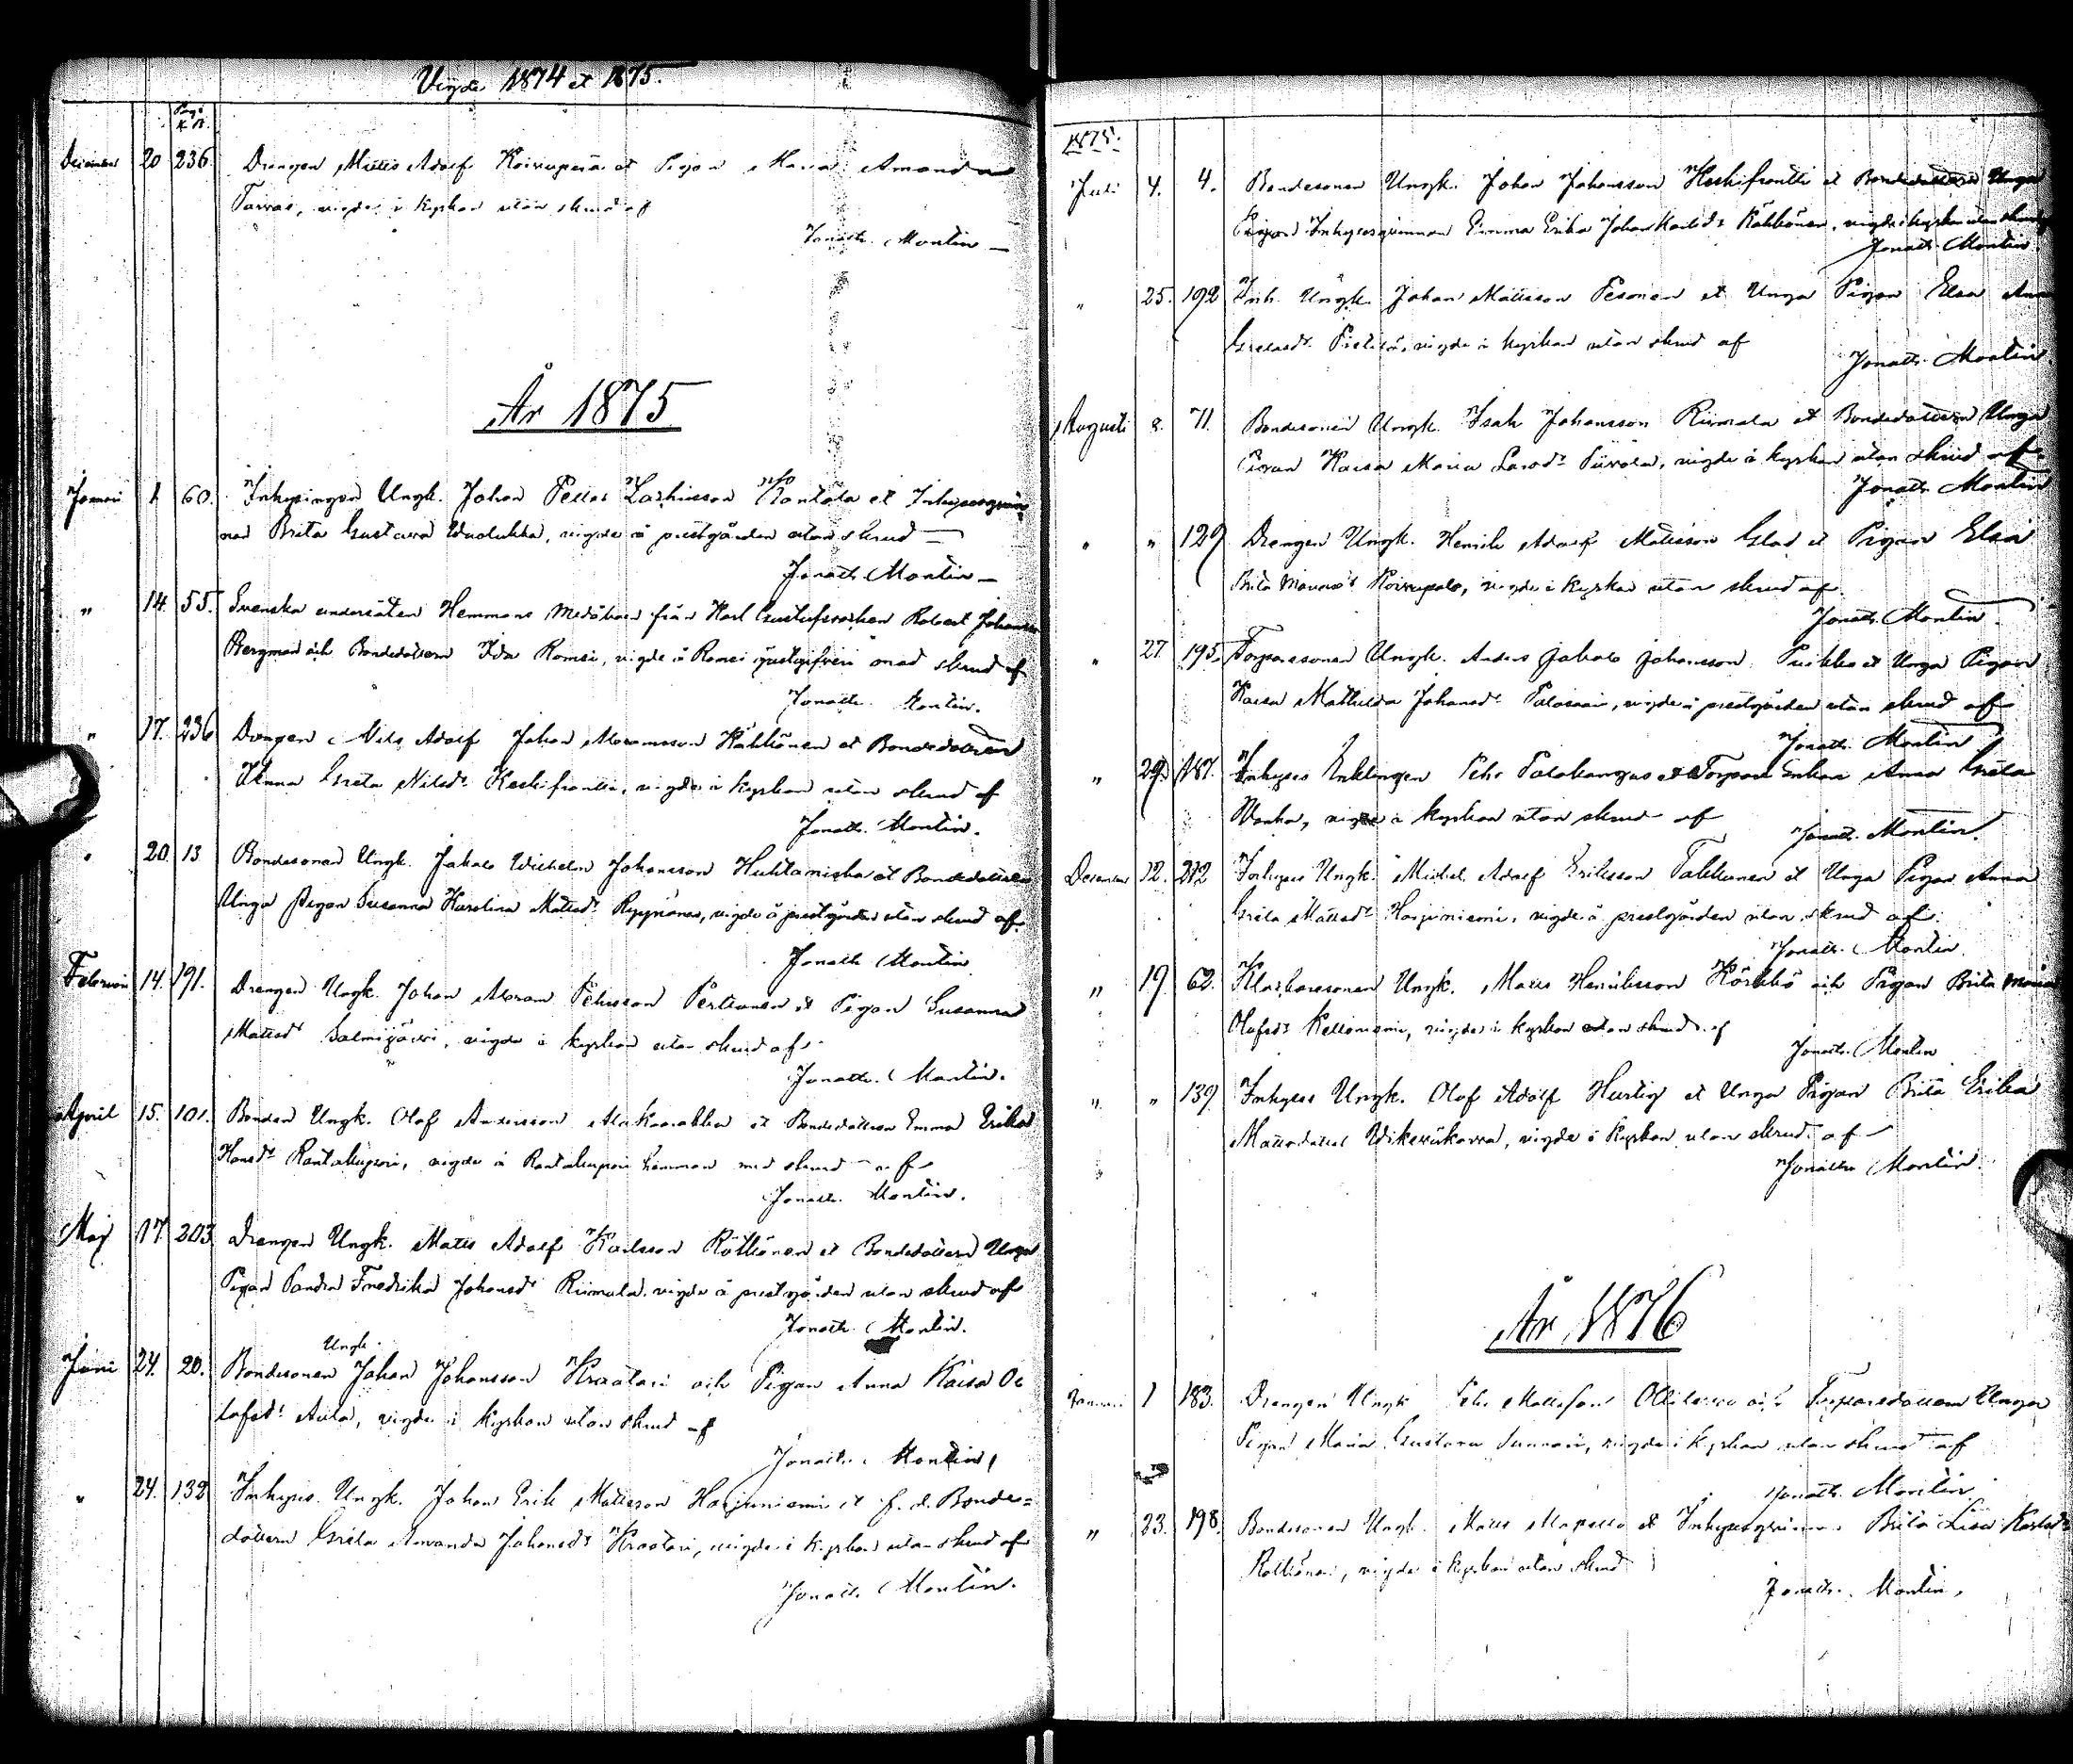 Vigde 1874 et 1875.
Pag. K. B.
December 20 236. Drengen Matts Adolf Koivuperä et Pigan Maria Amanda
Tarras, vigde i kyrkan utan skrud af
Jonath. Montin
År 1875
Januari 1. 60. Inhysingen Ungk. Johan Petter Zachrisson Rantala et Inhysesqvin-
nan Brita Gustava, vigde i prestgården utan skrud
Jonath. Montin
" 14. 55. Svenska undersåten Hemmans Medåboen från Karl Gustafs socken Robert Johansson
Bergman och Bondedottern Ida Romsi, vigde i Romsi gästgifveri med skrud af
Jonath. Montin.
" 17. 236 Drengen Nils Adolf Johan Abramsson Kähkönen et Bondedottren
Anna Greta Nilsdr Keskifrantti, vigde i kyrkan utan skrud af
Jonath. Montin.
" 20. 13 Bondesonen Ungk. Jakob Wilhelm Johansson Huhtaniska et Bondedottren
Unga Pigan Susanna Karolina Mattsdr, vigde å prestgården utan skrud af
Jonath. Montin
Februari 14. 191. Drengen Ungk. Johan Abram Pehrsson Perttunen et Pigan Susanna
Mattsdr Salmijärvi, vigde i kyrkan utan skrud af
Jonath. Montin.
April 15. 101. Bonden Ungk. Olof Andersson Alakaarakka et Bondedottren Emma Erika
Hansdr, vigde å hemman med skrud af
Jonath. Montin.
Maj 17. 203 Drengen Ungk. Matts Adolf Karlsson Röttiönen et Bondedottern Unga
Pigan Sandra Fredrika Johansdr Riimala, vigde å prestgården utan skrud af
Jonath. Montin.
Ungk.
Juni 24. 20. Bondesonen Johan Johansson Kraatari och Pigan Anna Kaisa O-
lofsdr Aula, vigde i kyrkan utan skrud af
Jonath. Montin,
" 24. 132 Inhyses Ungk. Johan Erik Mattsson Harjuniemi et f. d. Bonde-
dottern Greta Amanda Johansdr Kraatari, vigde i kyrkan utan skrud af
Jonath. Montin.
1875.
Juli 4. 4. Bondesonen Ungk. Johan Johansson Keskifrantti et Bondedottern Unga
Pigan Inhysesqvinnan Emma Erika Johan Karlsdr Kähkönen, vigde i kyrkan utan skrud af
Jonath. Montin.
" 25. 192 Inh. Ungk. Johan Mattsson Pesonen et Unga Pigan Elsa Anna
Gretasdr, vigde i kyrkan utan skrud af
Jonath. Montin.
Augusti 8. 71. Bondesonen Ungk. Isak Johansson Riimala et Bondedottern Unga
Pigan Kaisa Maria Larsdr Piirola, vigde i kyrkan utan skrud af
Jonath. Montin
" " 129 Drengen Ungk. Henrik Adolf Mattsson Glad et Pigan Elsa
Brita, vigde i kyrkan utan skrud af
Jonath. Montin.
" 27. 195. Torparesonen Ungk. Anders Jakob Johansson et Unga Pigan
Kaisa Mathilda Johansdr Palosaari, vigde i prestgården utan skrud af
Jonath. Montin
" 29. 187. Inhyses Enklingen Pehr Palokangas et Torpare Enkan Anna Greta
Wanha, vigde i kyrkan utan skrud af
Jonath. Montin.
December 12. 212 Inhyses Ungk. Michel Adolf Eriksson Takkunen et Unga Pigan Anna
Greta Mattsdr Harjuniemi, vigde å prestgården utan skrud af
Jonath. Montin.
" 19. 62. Klockaresonen Ungk. Matts Henriksson Körkkö och Pigan Brita Maria
Olofsdr Kelloniemi, vigde i kyrkan utan skrud af
Jonath. Montin
" " 139. Inhyses Ungk. Olof Adolf Hurtig et Unga Pigan Brita Erika
Mattsdotter, vigde i kyrkan utan skrud af
Jonath. Montin.
År 1876
Januari 1 183. Drengen Ungk. Pehr Mattsson och Torparedottern Unga
Pigan Maria Gustava, vigde i kyrkan utan skrud af
Jonath. Montin.
" 23. 198. Bondesonen Ungk. Matts et Inhysesqvinnan Brita Lisa Karlsdr
Röttiönen, vigde i kyrkan utan skrud
Jonath. Montin.